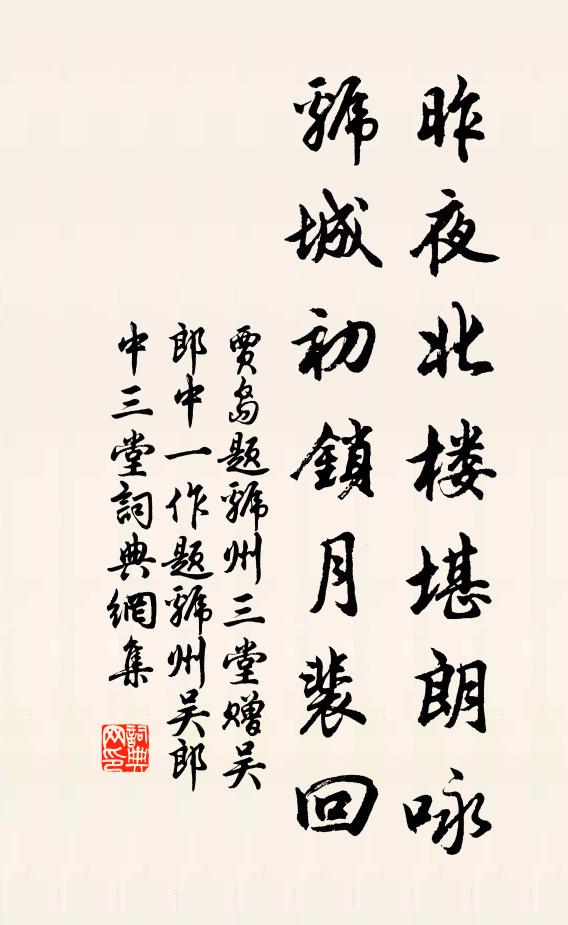 昨夜北楼堪朗咏
虢城初鎖月裴回
賈島题虢州三堂赠吴
郎中一作题虢州吴郎
中三堂詞典網集
詞典
网印